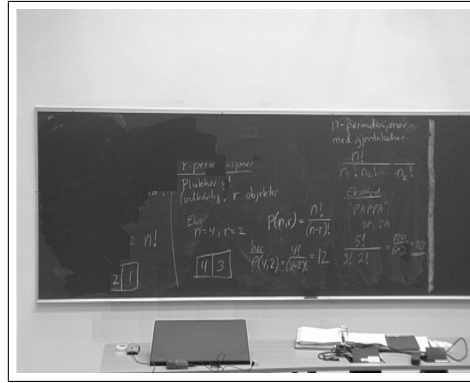 n!
2 1
r-permutasjoner
Plukker ut
r objekter
n=4, r=2
P(n,r) = n!/(n-r)!
4 3
P(4,2) = 4!/(4-2)! = 12
n-permutasjoner
med gjentakelser
n!
n₁! n₂! ... nₖ!
Eksempel
"PAPPA"
3P, 2A
5!/3! 2! = 120/6·2 = 10